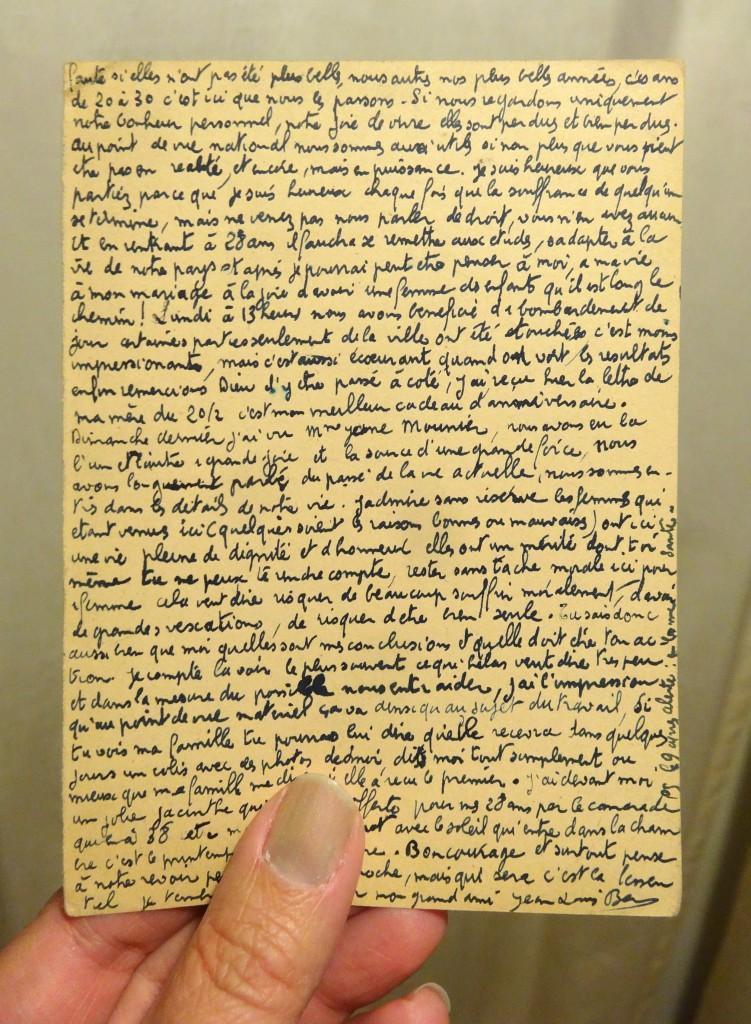 faute si elles n'ont pas été plus belles, nous autres nos plus belles années, ces ans
de 20 à 30 c'est ici que nous les passons. Si nous regardons uniquement
notre bonheur personnel, notre joie de vivre elles sont perdus et bien perdus.
au point de vue national nous sommes aussi utils si non plus que vous
être pas en réalité, et encore, mais en puissance. je suis heureux que vous
partiez parce que je suis heureux chaque fois que la souffrance de quelqu'un
se termine, mais ne venez pas nous parler de droit, vous n'en avez aucun
et en rentrant à 28 ans il faudra se remettre aux etudes, s'adapter à la
vie de notre pays et après je pourrai peut etre penser à moi, a ma vie
à mon mariage à la joie d'avoir une femme des enfants qu'il est long le
chemin ! Lundi à 13 heures nous avons beneficié de bombardement de
jour certaines parties seulement de la ville ont été touchées c'est moins
impressionants, mais c'est aussi écoeurant quand on voit les resultats
enfin remercions Dieu d'y etre passé à coté, j'ai reçu hier la lettre de
ma mère du 20/2 c'est mon meilleur cadeau d'anniversaire.
Dimanche dernier j'ai vu Mme Mounier, nous avons eu la
l'un et l'autre 1 grande joie et la source d'une grande force, nous
avons longuement parlé du passé de la vie actuelle, nous sommes en-
trés dans les détails de notre vie. J'admire sans réserve les femmes qui
etant venues ici (quelques soient les raisons bonnes ou mauvaises) ont ici
une vie pleine de dignité et d'honneur elles ont un mérite dont toi
même tu ne peux te rendre compte, rester sans tache morale ici pour
1 femme cela veut dire risquer de beaucoup souffrir moralement, d'avoir
de grandes vexations, de risquer d'etre bien seule. Tu sais donc
aussi bien que moi quelles sont mes conclusions et quelle doit etre ton ac
tion. je compte la voir le plus souvent ce qui hélas veut dire tres peu
et dans la mesure du possible nous entraider, j'ai l'impression
qu'au point de vue matériel ça va ainsi qu'au sujet du travail, Si
tu vois ma famille tu pourras lui dire qu'elle recevra dans quelques
jours un colis avec des photos de moi dis moi tout simplement ou
mieux que ma famille me si elle a reçu le premier. j'ai devant moi
un jolie jacinthe pour mes 28 ans par le camarade
qui en a 38 et avec le soleil qui entre dans la cham
bre c'est le . Bon courage et surtout pense
à notre revoir , mais qui sera c'est là l'essen
tiel mon grand ami Jean Louis